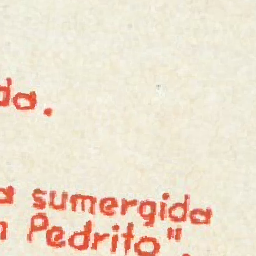 do.
a sumergida
n Pedrito".